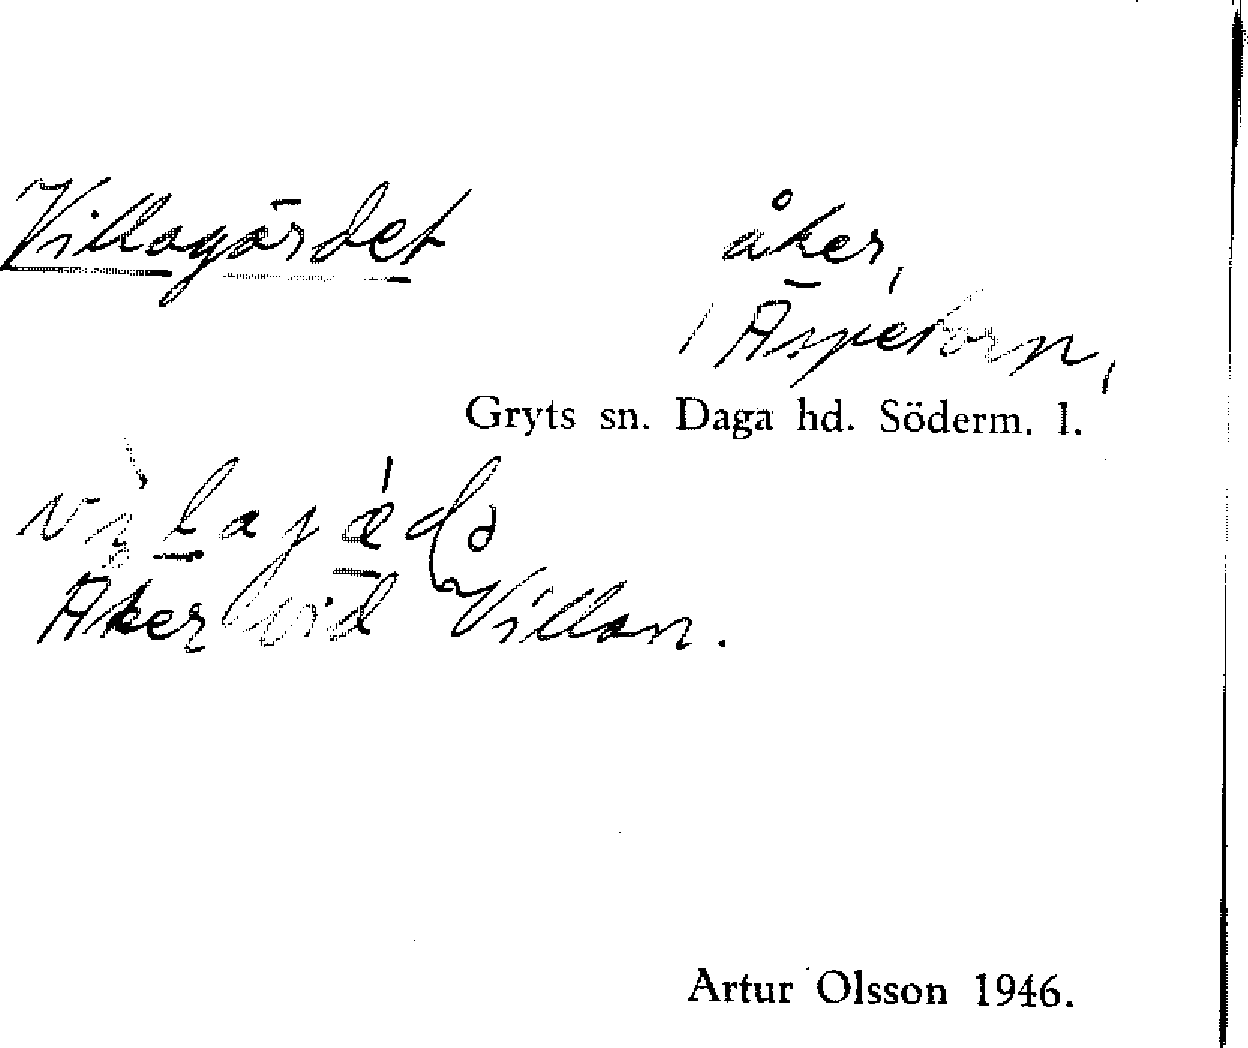 Villagärdet åker,
i Äspetorp,
Gryts sn. Daga hd. Söderm. l.
Åker vid Villan.
Artur Olsson 1946.